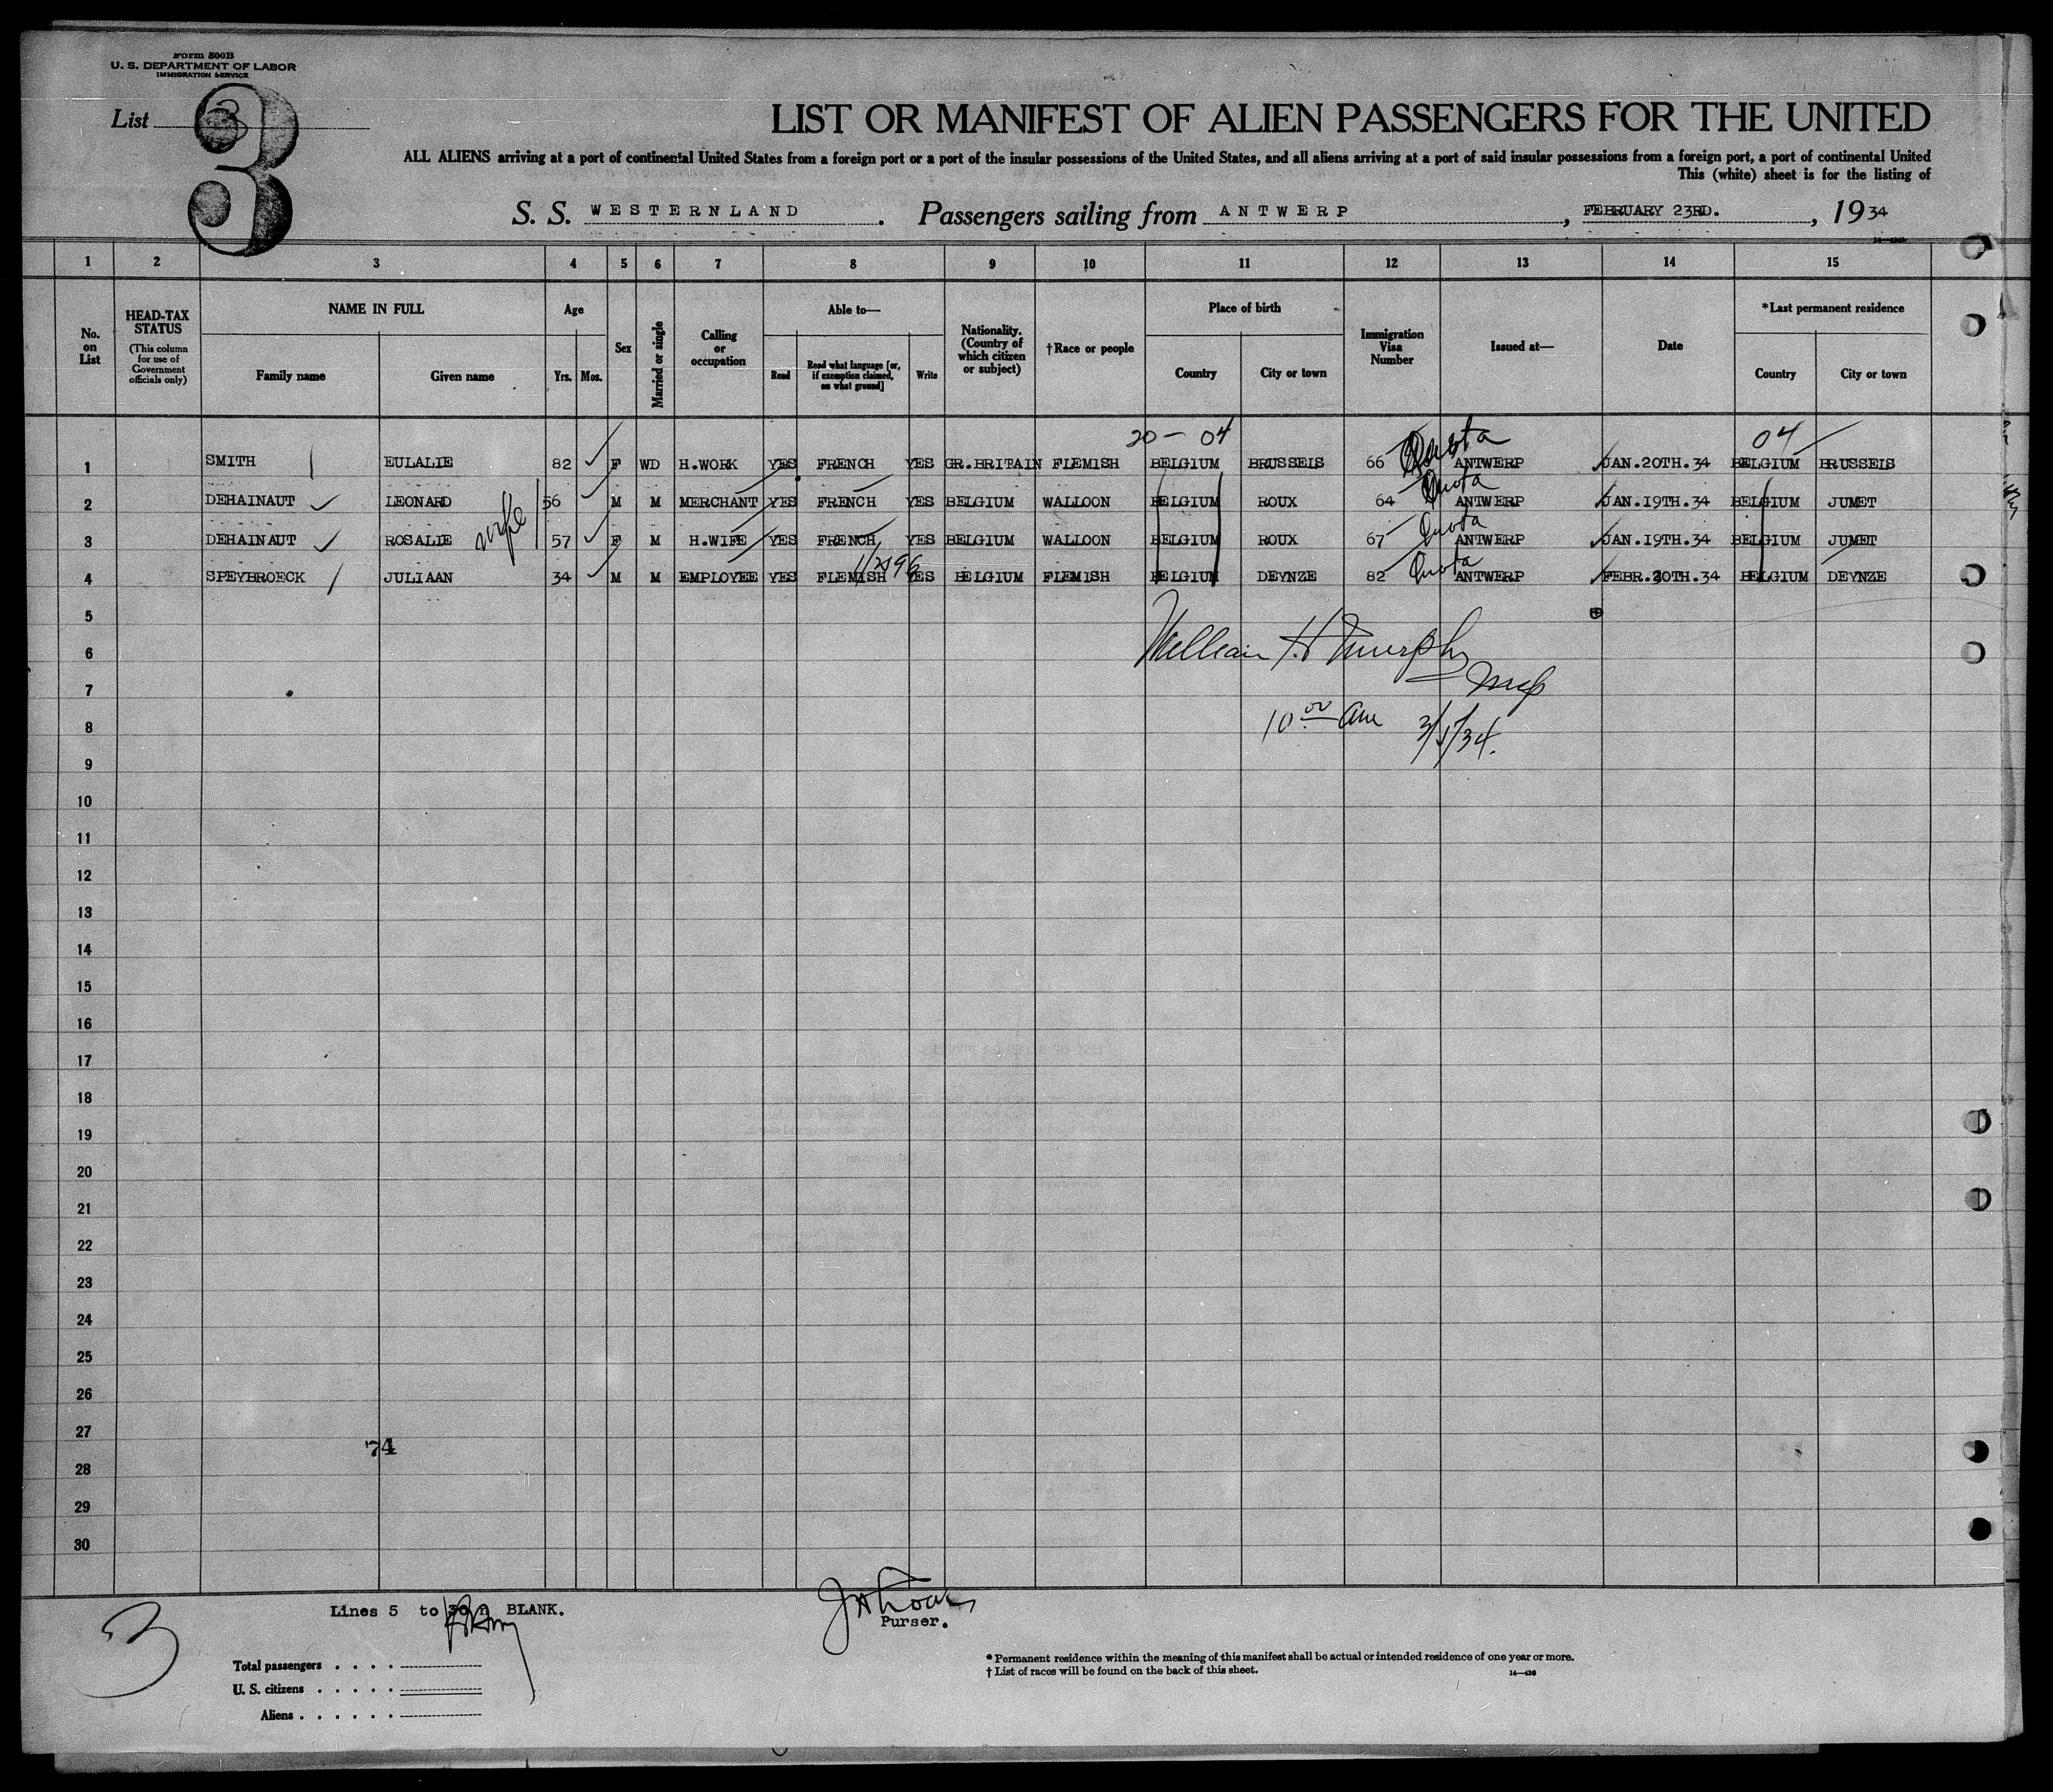 Form 500B
U. S. DEPARTMENT OF LABOR
IMMIGRATION SERVICE
List 3
3
LIST OR MANIFEST OF ALIEN PASSENGERS FOR THE UNITED
ALL ALIENS arriving at a port of continental United States from a foreign port or a port of the insular possessions of the United States, and all aliens arriving at a port of said insular possessions from a foreign port, a port of continental United
This (white) sheet is for the listing of
S. S. WESTERNLAND. Passengers sailing from ANTWERP, FEBRUARY 23RD., 1934
1 2 3 4 5 6 7 8 9 10 11 12 13 14 15
No. on List
HEAD-TAX STATUS
(This column for use of Government officials only)
NAME IN FULL
Family name
Given name
Age
Yrs. Mos.
Sex
Married or single
Calling or occupation
Able to—
Read
Read what language [or, if exemption claimed, on what ground]
Write
Nationality. (Country of which citizen or subject)
†Race or people
Place of birth
Country
City or town
Immigration Visa Number
Issued at—
Date
*Last permanent residence
Country
City or town
20 - 04 04
1 SMITH EULALIE 82 F WD H.WORK YES FRENCH YES GR.BRITAIN FLEMISH BELGIUM BRUSSELS 66 Quota ANTWERP JAN.20TH.34 BELGIUM BRUSSELS
2 DEHAINAUT LEONARD 56 M M MERCHANT YES FRENCH YES BELGIUM WALLOON BELGIUM ROUX 64 Quota ANTWERP JAN.19TH.34 BELGIUM JUMET
3 DEHAINAUT ROSALIE wife 57 F M H.WIFE YES FRENCH YES BELGIUM WALLOON BELGIUM ROUX 67 Quota ANTWERP JAN.19TH.34 BELGIUM JUMET
4 SPEYBROECK JULIAAN 34 M M EMPLOYEE YES FLEMISH YES BELGIUM FLEMISH BELGIUM DEYNZE 82 Quota ANTWERP FEBR.20TH.34 BELGIUM DEYNZE
5
6 William H Murphy
7
8 10 00 am 3/5/34.
9
10
11
12
13
14
15
16
17
18
19
20
21
22
23
24
25
26
27
74
28
29
30
Lines 5 to 30 BLANK.
Purser.
3
Total passengers
U. S. citizens
Aliens
* Permanent residence within the meaning of this manifest shall be actual or intended residence of one year or more.
† List of races will be found on the back of this sheet.
14—430